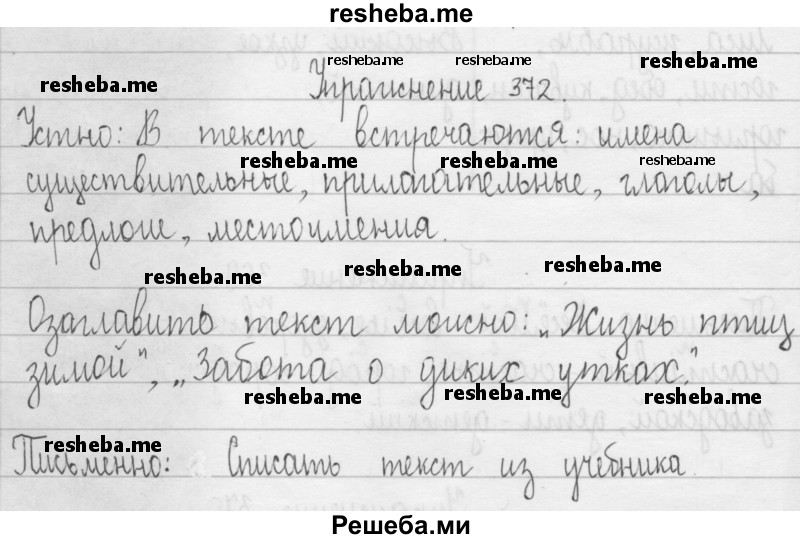 resheba.me
resheba.me resheba.me resheba.me resheba.me
Упражнение 372.
Устно: В тексте встречаются: имена
resheba.me resheba.me resheba.me
существительные, прилагательные, глаголы,
предлоги, местоимения.
resheba.me resheba.me resheba.me
Озаглавить текст можно: „Жизнь птиц
зимой", „Забота о диких утках."
resheba.me resheba.me resheba.me
resheba.me
Письменно: Списать текст из учебника.
Решеба.ми